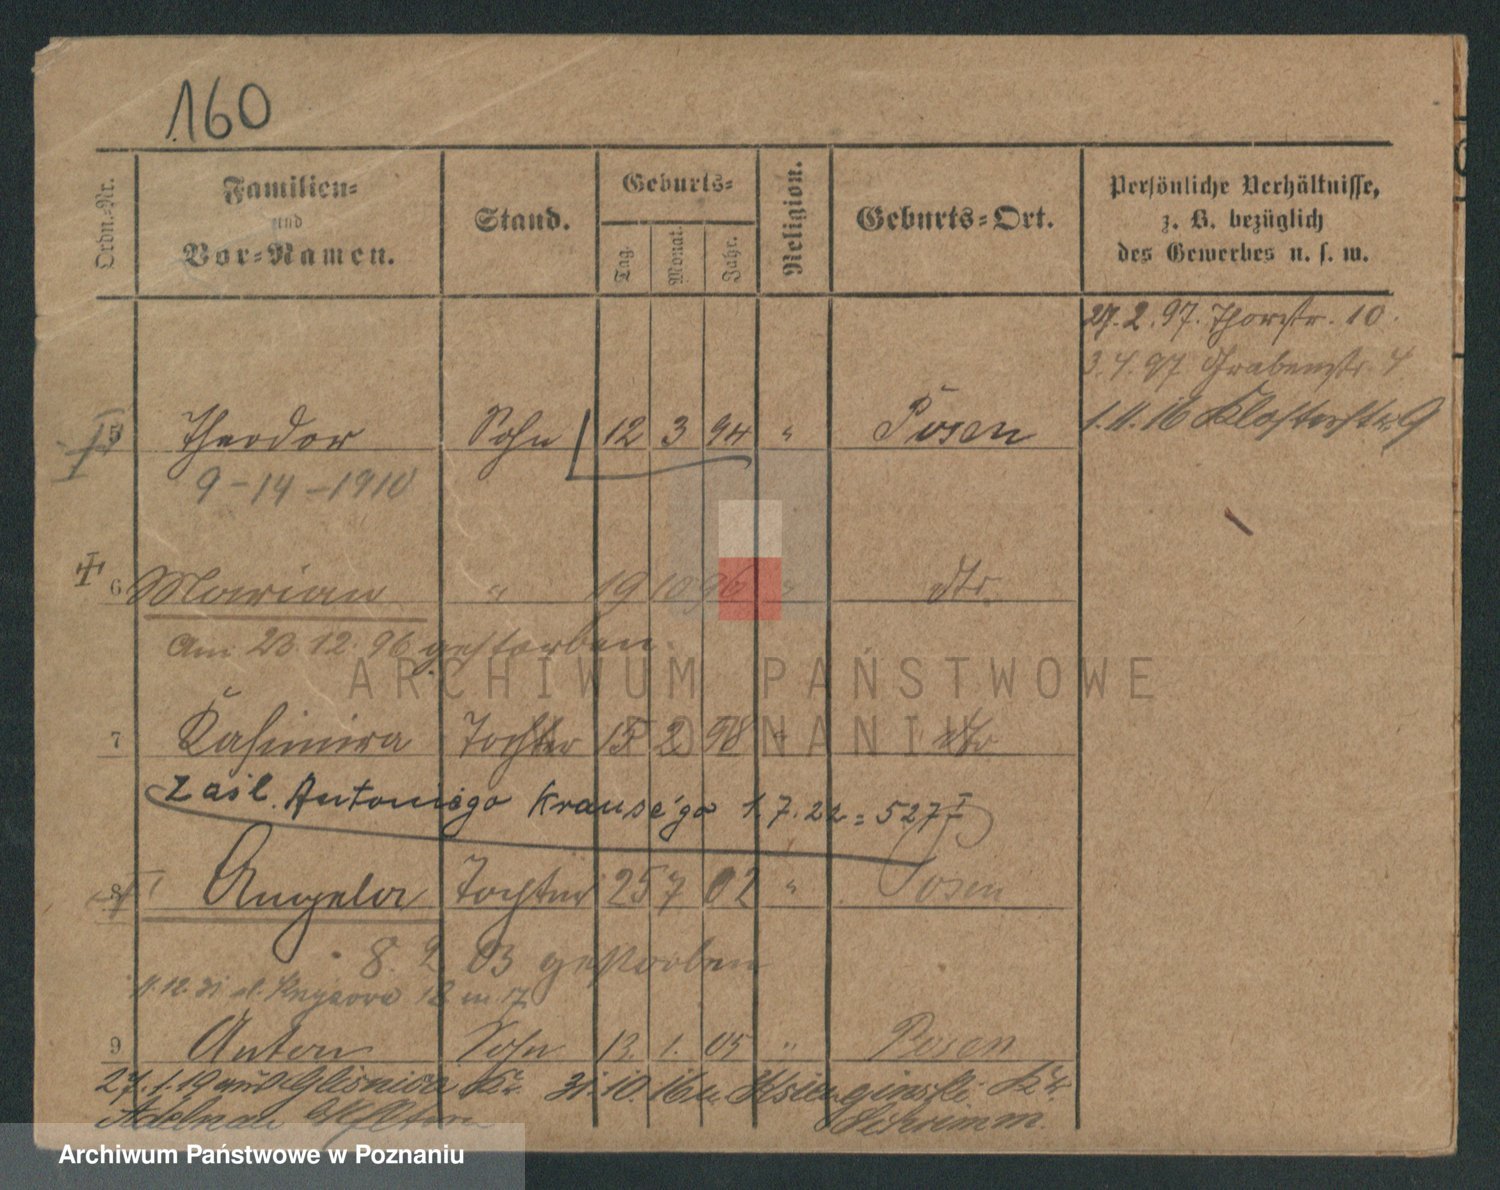 160
Ordn.-Nr.
Familien-
und
Vor-Namen.
Stand.
Geburts-
Tag.
Monat.
Jahr.
Religion.
Geburts-Ort.
Persönliche Verhältnisse,
z. B. bezüglich
des Gewerbes u. s. w.
27.2.97. Thorstr. 10.
3.4.97 Grabenstr. 4
1.11.16 Klosterstr. 9
5 Theodor Sohn 12 3 94 " Posen
9-14-1910
6 Marian " 19 10 96 " dto.
Am 23.12.96 gestorben.
ARCHIWUM PAŃSTWOWE
W POZNANIU
7 Kasimira Tochter 15 2 98 " dto
zaśl. Antoniego Krause'go 1.7.22 = 527 I
8 Angela Tochter 25 7 02 " Posen
8. 9 03 gestorben
11.12.31 ul. 12 m. 7
9 Anton Sohn 13. 1. 05 " Posen
27.1.19 Kr. 31.10.16 n. Kr.
Adelnau Eltern Schrimm.
Archiwum Państwowe w Poznaniu